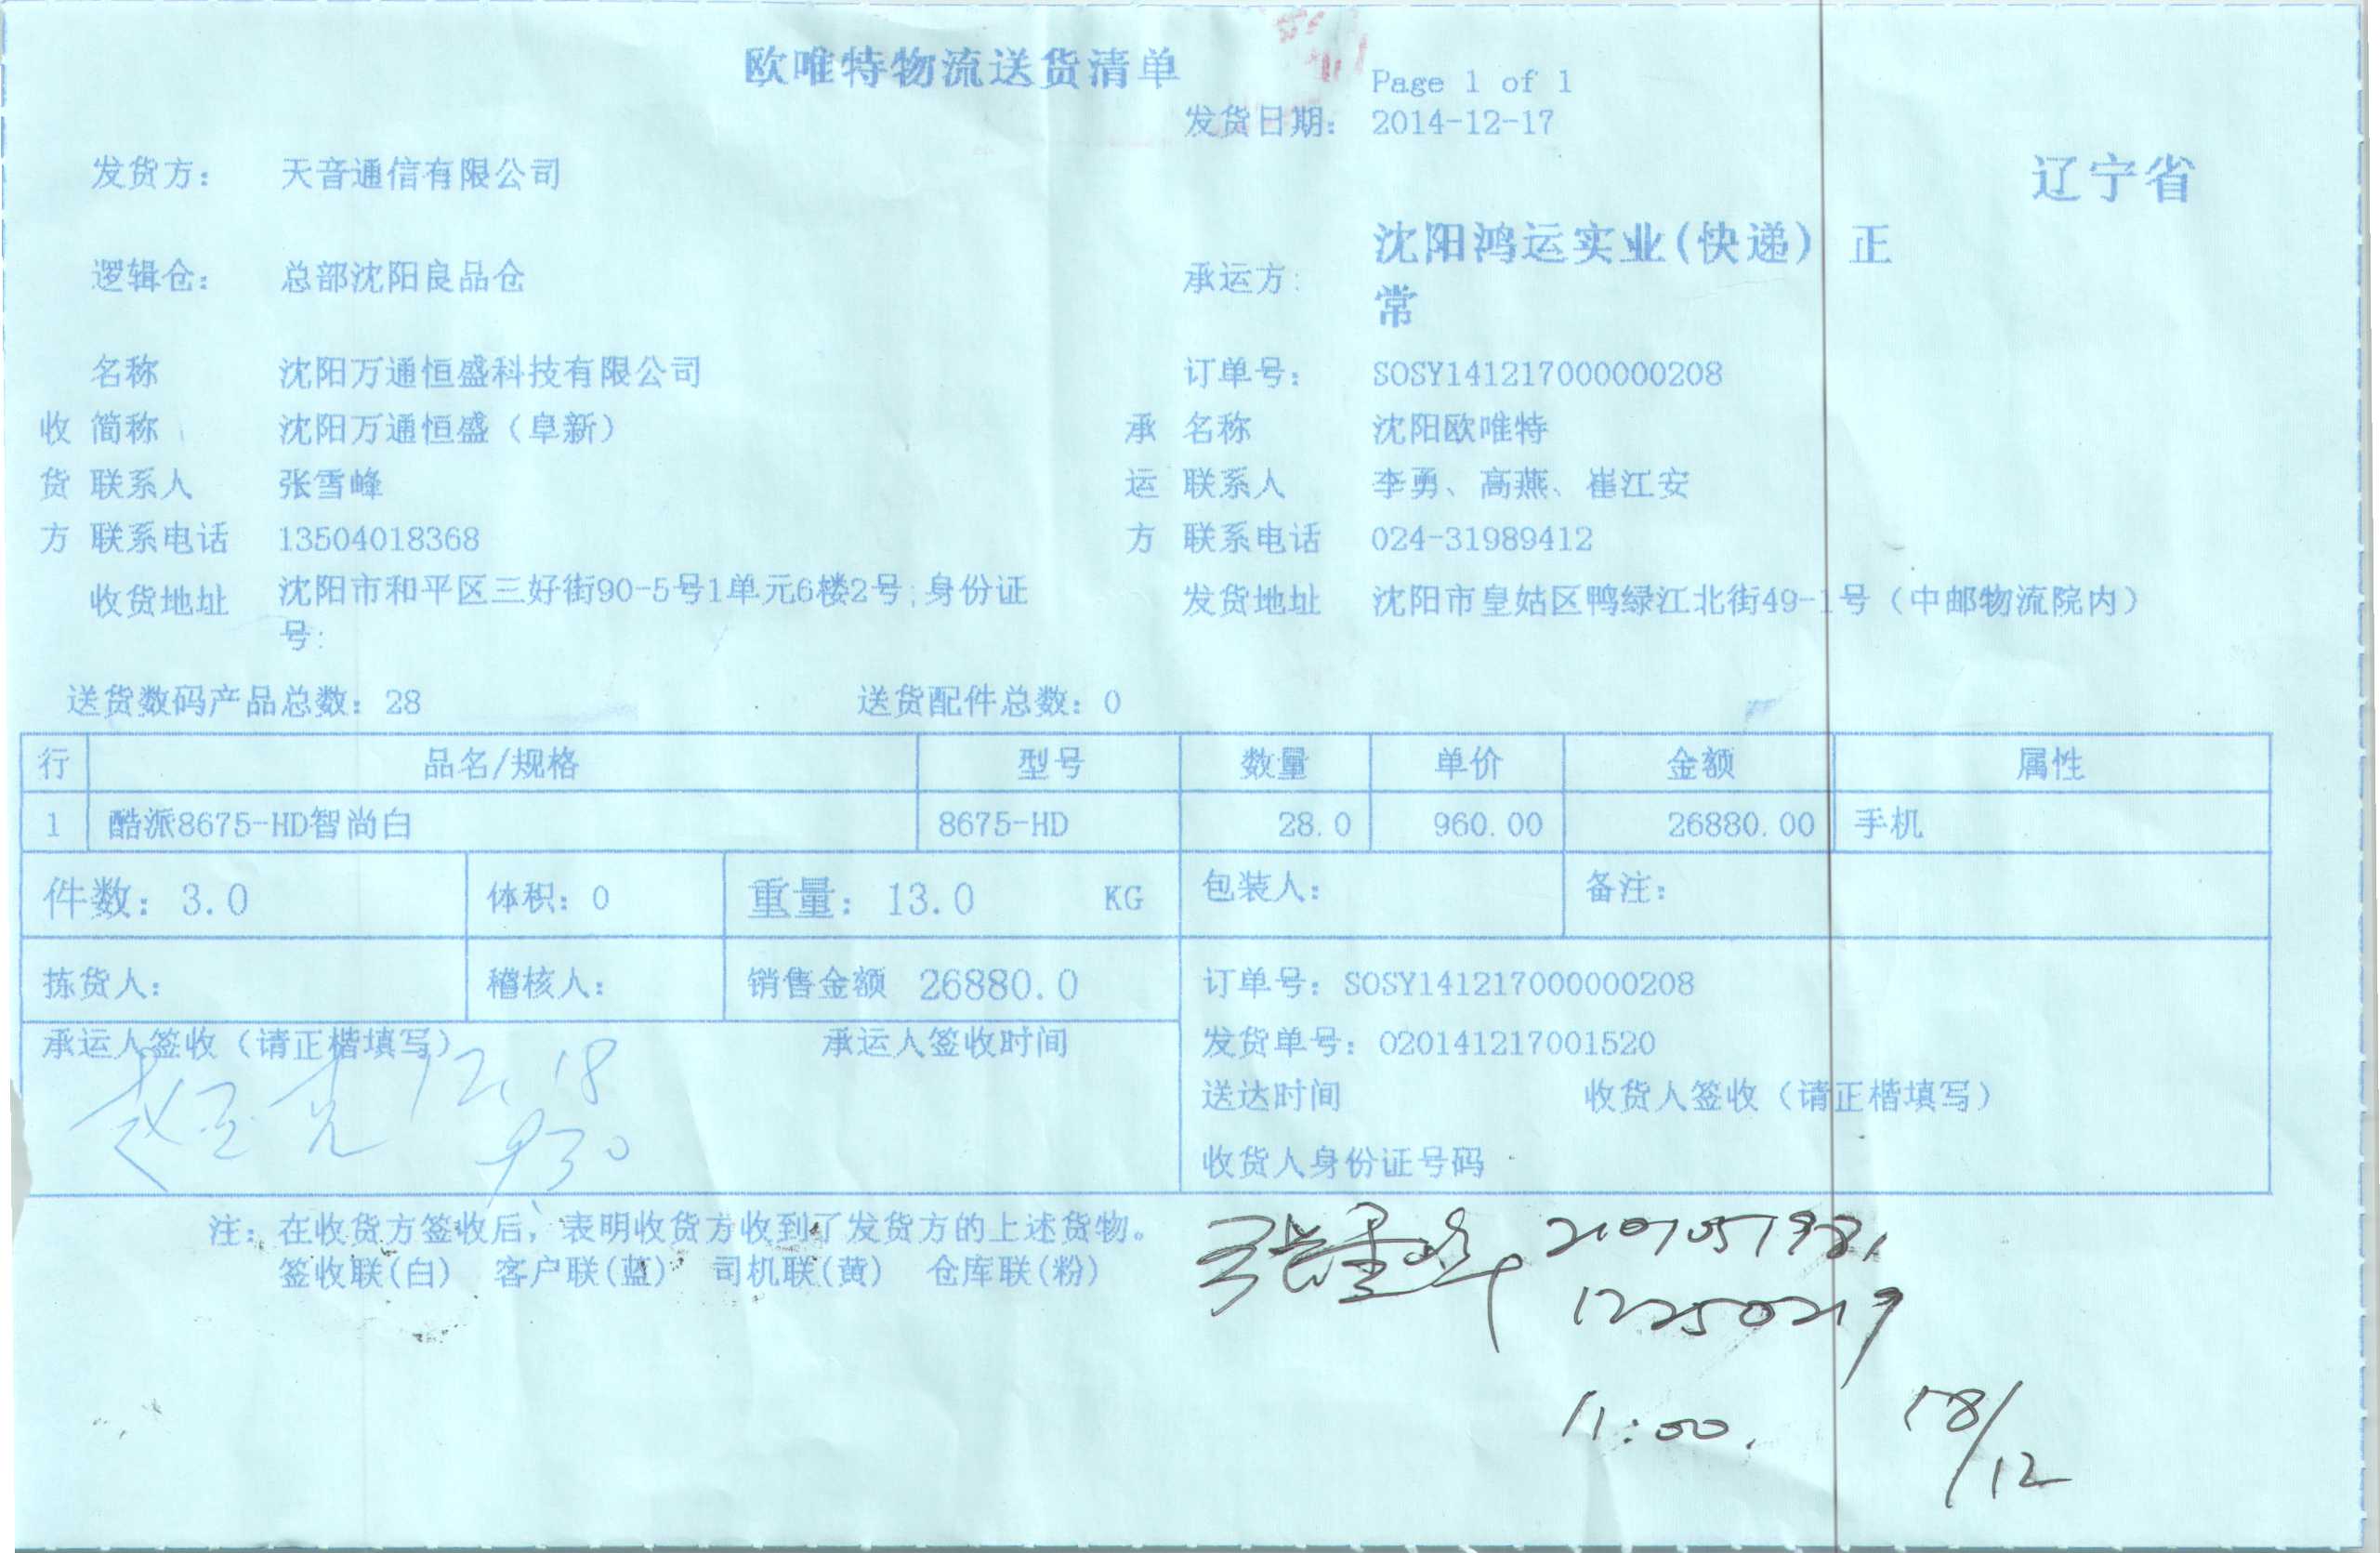 欧唯特物流送货清单
Page 1 of 1
发货日期: 2014-12-17
发货方: 天音通信有限公司
辽宁省
逻辑仓: 总部沈阳良品仓
承运方: 沈阳鸿运实业(快递) 正
常
名称 沈阳万通恒盛科技有限公司 订单号: SOSY141217000000208
收 简称 沈阳万通恒盛（阜新） 承 名称 沈阳欧唯特
货 联系人 张雪峰 运 联系人 李勇、高燕、崔江安
方 联系电话 13504018368 方 联系电话 024-31989412
收货地址 沈阳市和平区三好街90-5号1单元6楼2号;身份证
号:
发货地址 沈阳市皇姑区鸭绿江北街49-1号（中邮物流院内）
送货数码产品总数: 28 送货配件总数: 0
行 品名/规格 型号 数量 单价 金额 属性
1 酷派8675-HD智尚白 8675-HD 28.0 960.00 26880.00 手机
件数: 3.0 体积: 0 重量: 13.0 KG 包装人: 备注:
拣货人: 稽核人: 销售金额 26880.0 订单号: SOSY141217000000208
承运人签收（请正楷填写） 承运人签收时间 发货单号: 020141217001520
12.18
9.30
送达时间 收货人签收（请正楷填写）
收货人身份证号码
注: 在收货方签收后, 表明收货方收到了发货方的上述货物。
签收联(白) 客户联(蓝) 司机联(黄) 仓库联(粉)
张雪峰 2101051981
12250219
11:00. 18/12